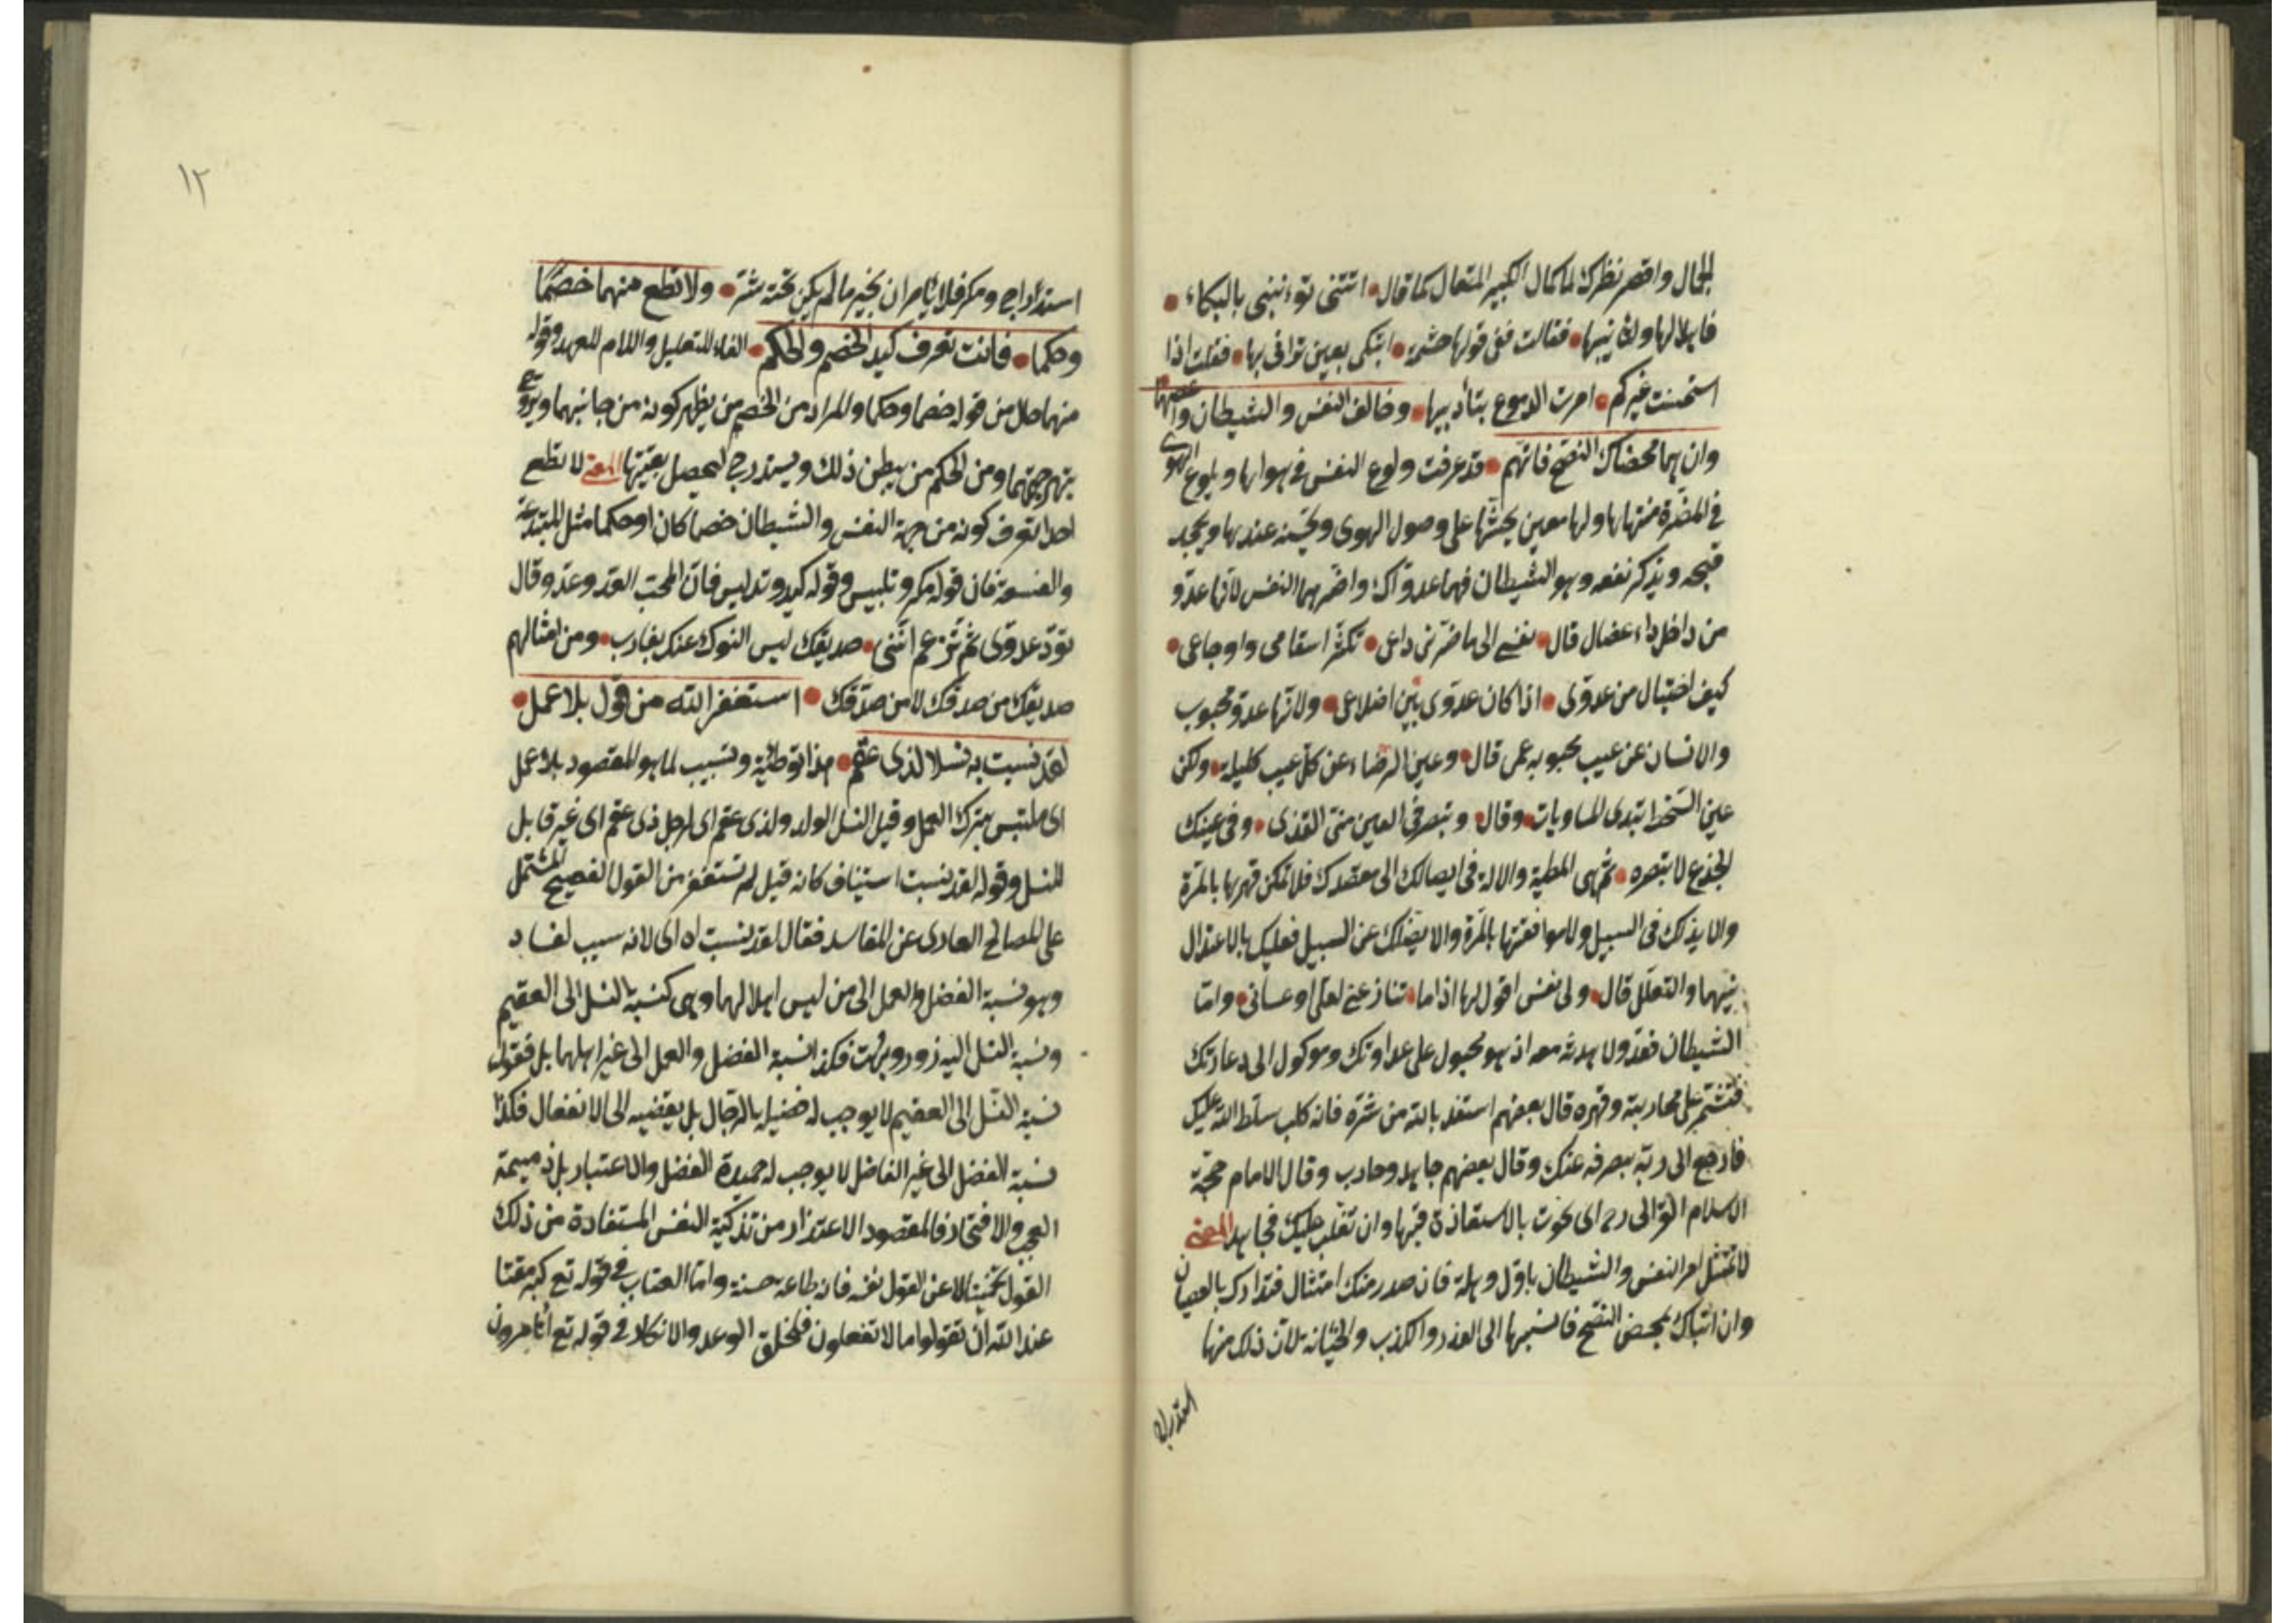 الجمال واقصر نظرك لما كمال الكبير المتعال كما قال اتتنى تؤنبنى بالبكاء
فاهلا لها ولتأنيبها فقالت ففى قولها حشمة اتبكى بعين ترانى بها فقلت اذا
استحسنت غيركم امرت الدموع بتأديبها وخالف النفس والشيطان واعصهما
وان هما محضاك النصح فاتهم قد عرفت ولوع النفس فى هواها وبلوغ الهوى
فى المضرة منتهاها ولها معين يحثها على وصول الهوى ويحسنه عندها ويجحد
قبحه ويذكر نفعه وهو الشيطان فهما عدواك واضرهما النفس لانها عدو
من داخل داء عضال قال نفسى الى ما ضرنى داعى تكثر اسقامى واوجاعى
كيف احتيال من عدوى اذا كان عدوى بين اضلاعى ولانها عدو محبوب
والانسان عن عيب محبوبه عمى قال وعين الرضاء عن كل عيب كليلة ولكن
عين السخط تبدى المساويات وقال وتبصر فى العين منى القذى وفى عينك
الجذع لا تبصره ثم هى المطية والالة فى ايصالك الى مقصدك فلا تمكن قهرها بالمرة
والا يذلك فى السبيل ولا موافقتها بالمرة والا يضلك عن السبيل فعليك بالاعتدال
بينهما والتعلل قال ولى نفس اقول لها اذا ما تنازعنى لعلى او عسانى واما
الشيطان فعدو لا هدنة معه اذ هو مجبول على عداوتك وموكول الى دعاوتك
فتشمر على محاربته وقهره قال بعضهم استعذ بالله من شره فانه كلب سلط الله عليك
فارجع الى ربه يصرفه عنك وقال بعضهم جاهد وحارب وقال الامام حجة
الاسلام الغزالى رح اى نجوت بالاستعاذة فبها وان تغلب عليك فجاهد المعنى
لا تمتثل امر النفس والشيطان باول وهلة فان صدر منك امتثال فتدارك بالعصيان
وان اتياك بمحض النصح فانسبها الى الغدر والكذب والخيانة لان ذلك منها
استدراج ومكر فلا يأمران بخير ما لم يكن تحته شر ولا تطع منهما خصما
وحكما فانت تعرف كيد الخصم والحكم الفاء للتعليل واللام للعهد وقوله
منهما حال من قوله خصما وحكما والمراد من الخصم من يظهر كونه من جانبهما ويروج
بهرجتهما ومن الحكم من يبطن ذلك ويستدرج لتحصل بغيتها المعنى لا تطع
احدا تعرف كونه من جهة النفس والشيطان خصما كان او حكما مثل المبتدعة
والفسقة فان قوله مكر وتلبيس وقوله كيد وتدليس فان المحب العدو عدو قال
تود عدوى ثم تزعم اننى صديقك ليس النوك عنك بغارب ومن امثالهم
صديقك من صدقك لا من صدّقك استغفر الله من قول بلا عمل
لقد نسبت به نسلا لذى عقم هذا توطئة وتسبيب لما هو المقصود بلا عمل
اى ملتبس بترك العمل وقيل النسل الولد ولذى عقم اى لرجل ذى عقم اى غير قابل
للنسل وقوله لقد نسبت استيناف كانه قيل لم تستغفر من القول الفصيح المشتمل
على المصالح العارى عن المفاسد فقال لقد نسبت اه اى لانه سبب لفساد
وهو نسبة الفضل والعمل الى من ليس اهلا لهما وهى كنسبة النسل الى العقيم
ونسبة النسل اليه زور وبهت فكذا نسبة الفضل والعمل الى غير اهلهما بل فقول
نسبة النسل الى العقيم لا يوجب له فضيلة بالرجال بل يقتضيه الى الانفعال فكذا
نسبة الفضل الى غير الفاضل لا يوجب له حميدة الفضل والاعتبار بل ذميمة
العجب والافتخار فالمقصود الاعتذار من تزكية النفس المستفادة من ذلك
القول لا عن القول نفسه فانه طاعة حسنة واما العتاب فى قوله تع كبر مقتا
عند الله ان تقولوا ما لا تفعلون فلخلق الوعد والانكار فى قوله تع اتأمرون
١٢